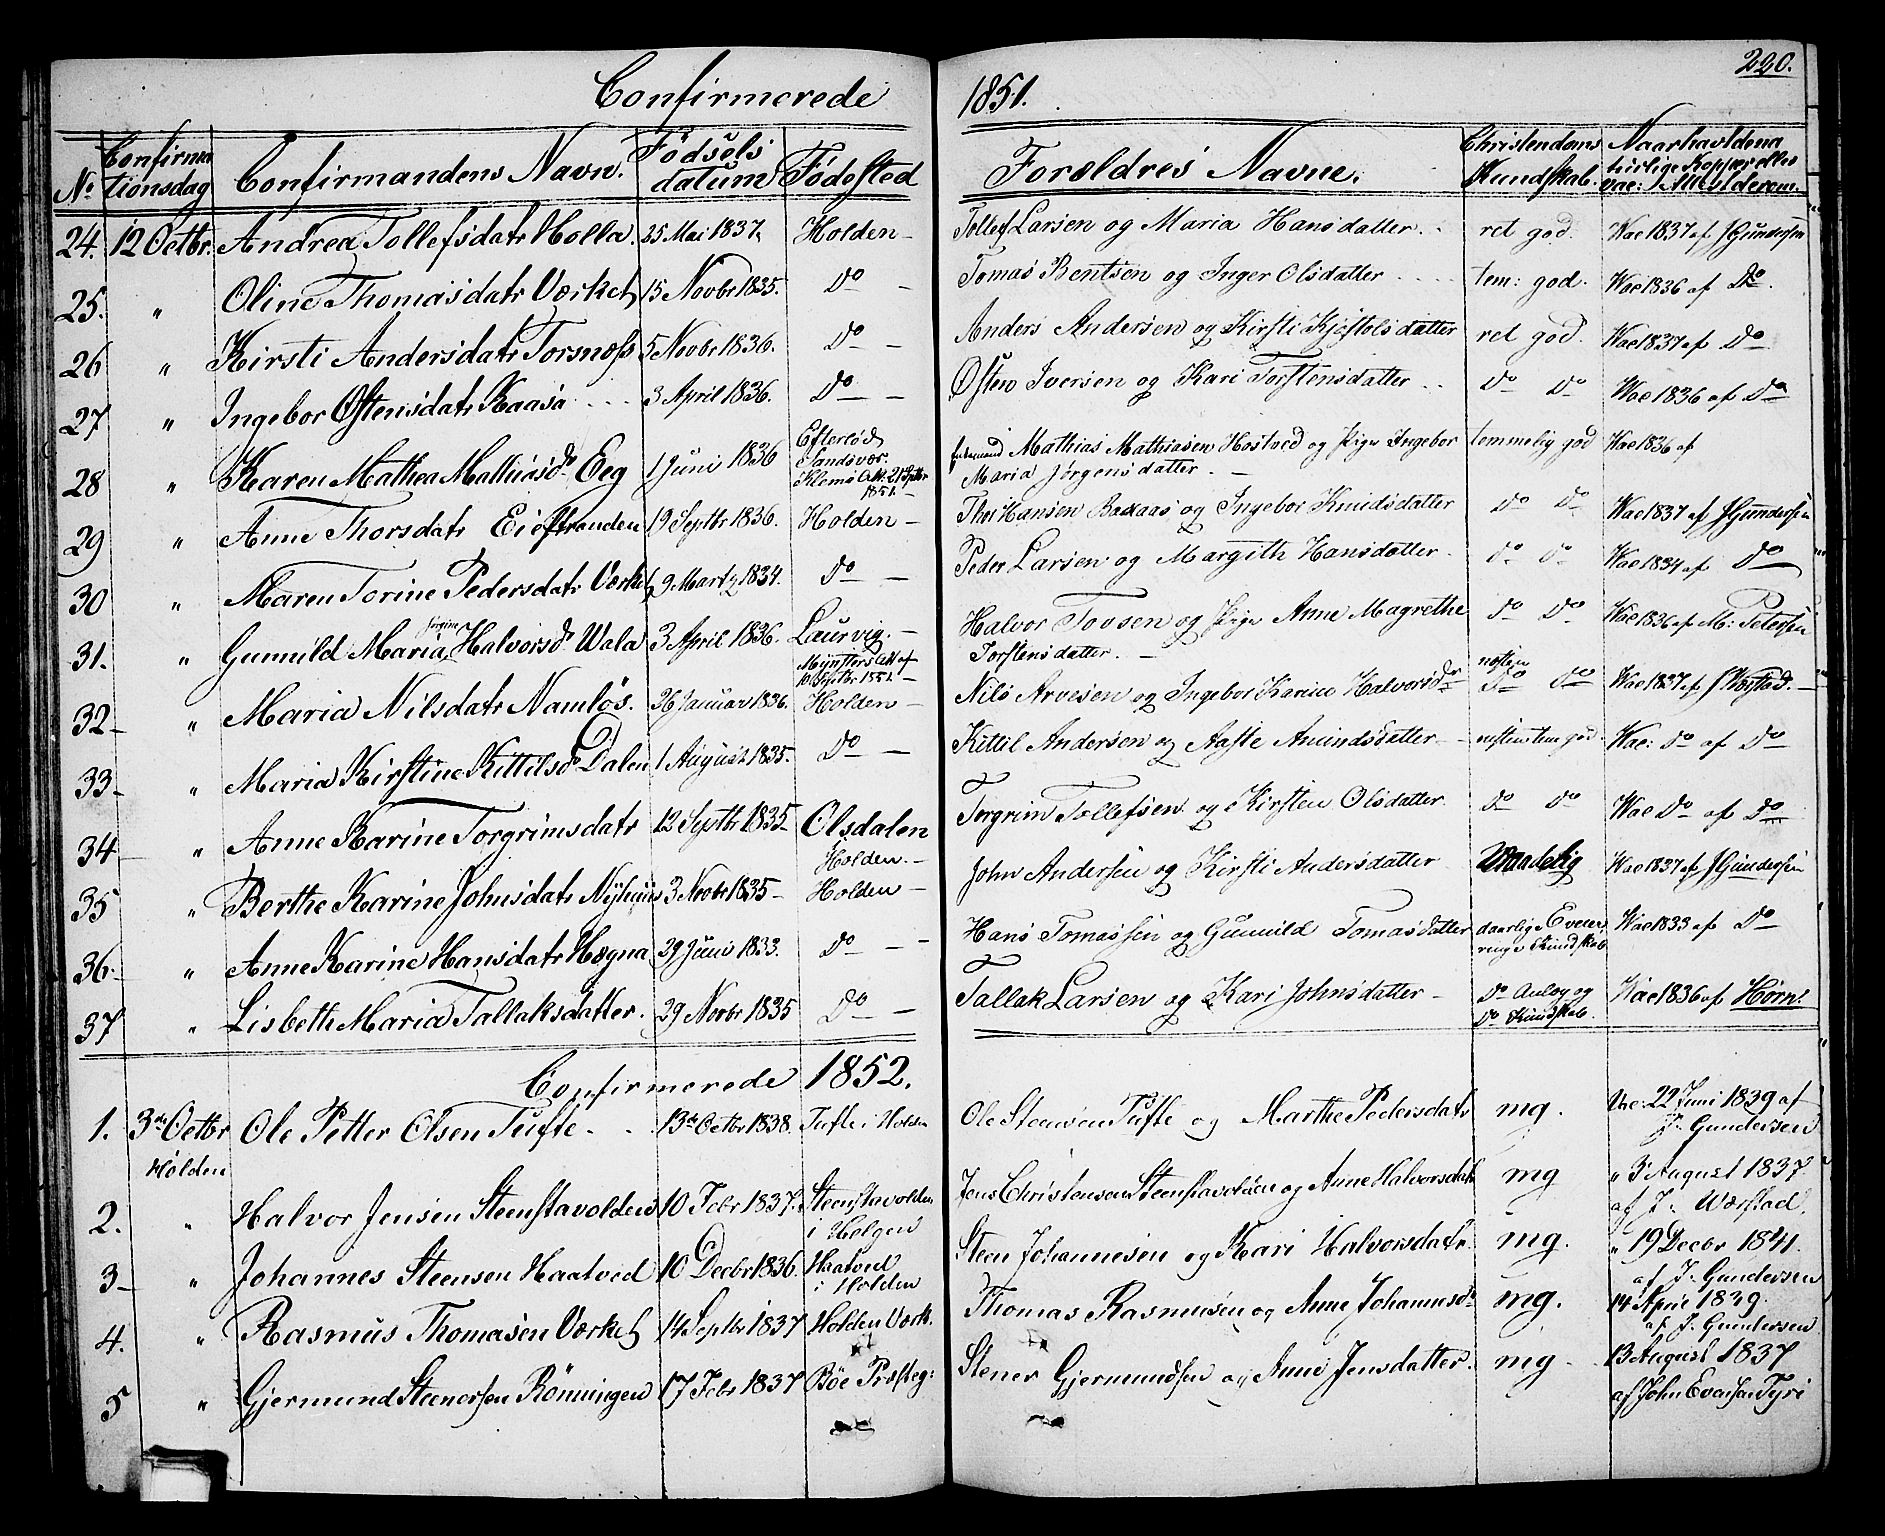 220.
Confirmerede 1851.
No Confirmationsdag Confirmandens Navn. Födsels datum Födested Forældres Navne. Christendoms Kundskab. Naar havt de naturlige Kopper eller vac: Attest derom.
24. 12 Octbr. Andrea Tollefsdatr Holla. 25 Mai 1837, Holden - Tollef Larsen og Maria Hansdatter ret god. Vac 1837 af J Gundersen
25. " Oline Thomasdatr Værket 15 Novbr 1835. Do - Tomas Bentsen og Inger Olsdatter tem: god. Vac 1836 af Do.
26 " Kirsti Andersdatr Torsnæss 5 Novbr 1836. Do - Anders Andersen og Kirsti Kjøstolsdatter ret god. Vac 1837 af Do
27 " Ingebor Østensdatr Kaasa 3 April 1836. Do - Østen Iversen og Kari Torstensdatter Do Do Vac 1836 af Do
28 " Karen Mathea Mathiasd. Eeg 1 Juni 1836 Efterlöd Sandsvær. Mathias Mathiasen og Pige Ingebor temmelig god Vac 1836 af
Klems Att. 21 Septbr 1851. - Maria Jørgensdatter. -
29 " Anne Thorsdatr Eiestranden 19 Septbr 1836. Holden - Thor Hansen og Ingebor Knudsdatter Do Do Vac 1837 af J Gundersen
30 " Maren Torine Pedersdatr Værket 9 Martz 1834. Do - Peder Larsen og Margith Hansdatter Do Do Vac 1834 af Do
31. " Gunnild Maria Jørgine Halvorsd. Wala 3 April 1836. Laurvig. - Halvor Tovsen og Pige Anne Magrethe Do Do Vac 1836 af M: Petersen
Mynsters Att. af 10 Septbr 1851. - Torstensdatter. -
32 - " Maria Nilsdatr Namløs. 26 Januar 1836. Holden - Nils Arvesen og Ingebor Karine Halvorsdr næsten Do Do Vac 1837 af J Værstad. -
33 - " Maria Kirstine Kittilsd. Dalen 1 August 1835. Do - Kittil Andersen og Aaste Amundsdatter - næsten tem god. Vac: Do af Do
34 - " Anne Karine Torgrimsdatr 12 Septbr 1835 Olsdalen Holden. - Torgrim Tollefsen og Kirsten Olsdatter Do Do Vac Do af Do
35 " Berthe Karine Johnsdatr Nyhuus 3 Novbr 1835 - Holden - John Andersen og Kirsti Andersdatter Maadelig Vac 1837 af J Gundersen
36. - " Anne Karine Hansdatr Hægna 29 Juni 1833. Do - - Hans Tomassen og Gunnild Tomasdatter daarlige Evner, ringe Kundskab Vac 1833 af Do
37 " Lisbeth Maria Tallaksdatter. 29 Novbr 1835 Do - Tallak Larsen og Kari Johnsdatter - Do Anlæg og Do Kundskab. Vac 1836 af Hørn:
Confirmerede 1852.
1. 3die Octbr Holden Ole Petter Olsen Tufte. 13de Octbr 1838. Tufte i Holden Ole Steensen Tufte og Marthe Pedersdatr mg. Vac: 22 Juni 1839 af J. Gundersen
2. " Halvor Jensen Steenstavolden 10 Febr 1837. Steenstavolden i Helgen Jens Christensen Steenstavolden og Anne Halvorsdatr mg " 3 August 1837 af J. Værstad.
3 - " Johannes Steensen Haatved 10 Decbr 1836. Haatved i Holden Steen Johannesen og Kari Halvorsdatr. mg. " 19 Decbr 1841. af J. Gundersen
4. " Rasmus Thomasen Værket 14 Septbr 1837 Holden Værk. Thomas Rasmusen og Anne Johannesd. mg. 14 April 1839. af J. Gundersen
5 " Gjermund Steenersen Rönningen 17 Febr 1837 Böe Præsteg: Stener Gjermundsen og Anne Jensdatter. mg 13 August 1837 af John Evensen Tyri